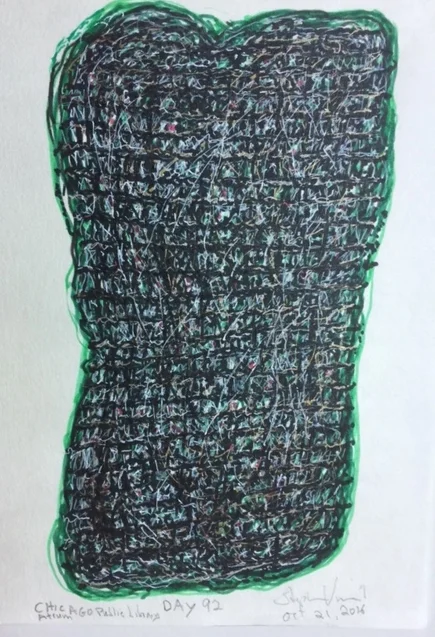 CHICAGO Public Library DAY 92
Atrium
Oct 21, 2016